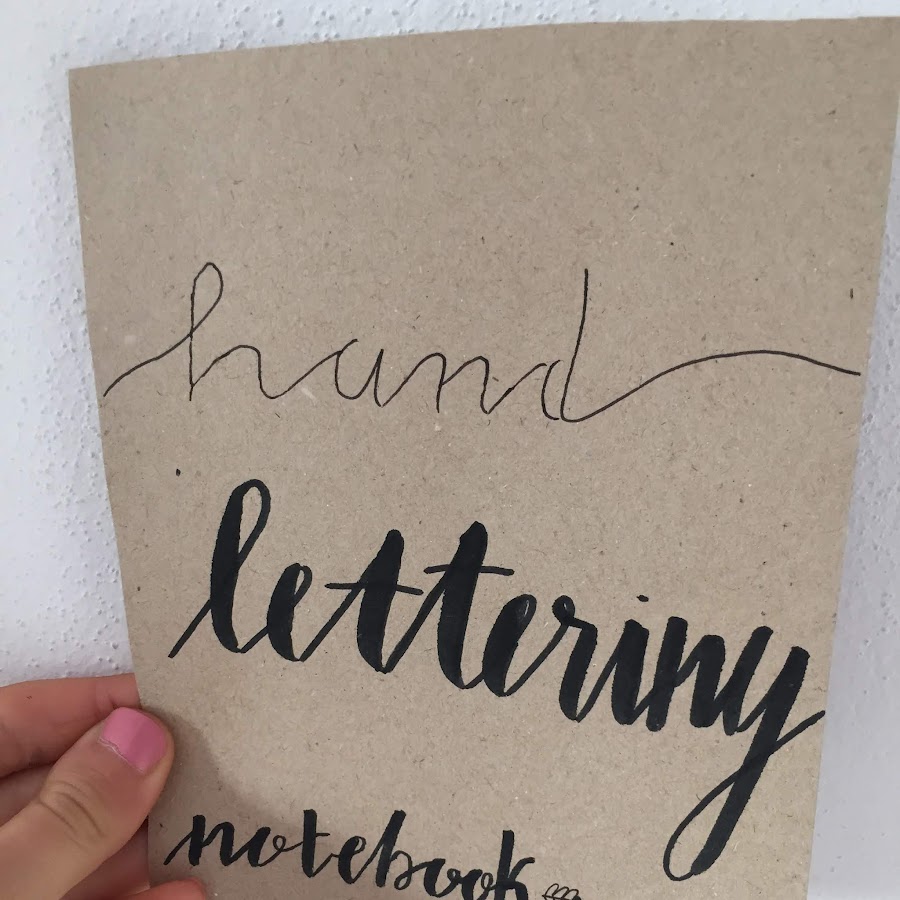 hand
lettering
notebook